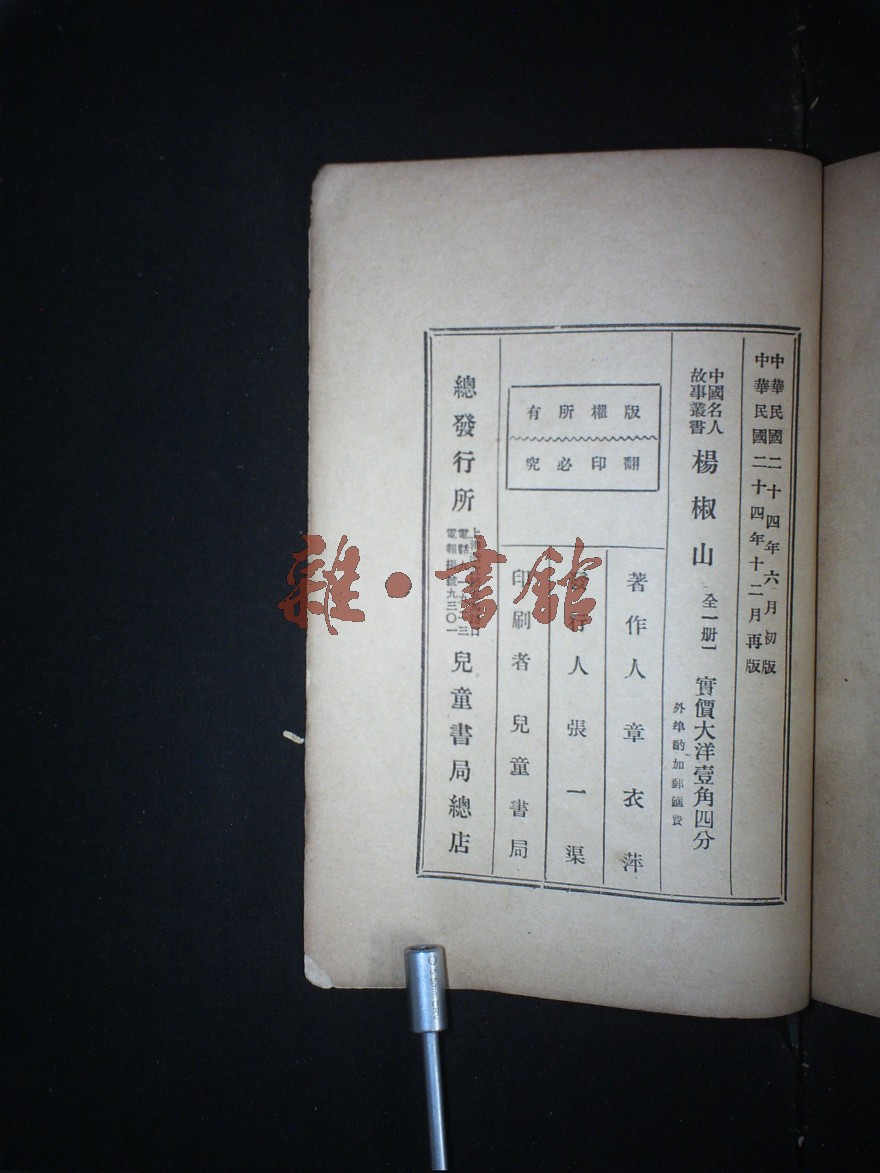 中華民國二十四年六月初版
中華民國二十四年十二月再版
中國名人
故事叢書
楊椒山
全一册
實價大洋壹角四分
外埠酌加郵匯費
版權所有
翻印必究
著作人 章衣萍
發行人 張一渠
印刷者 兒童書局
總發行所
上海
電話
電報掛號九三〇一
兒童書局總店
雜·書館